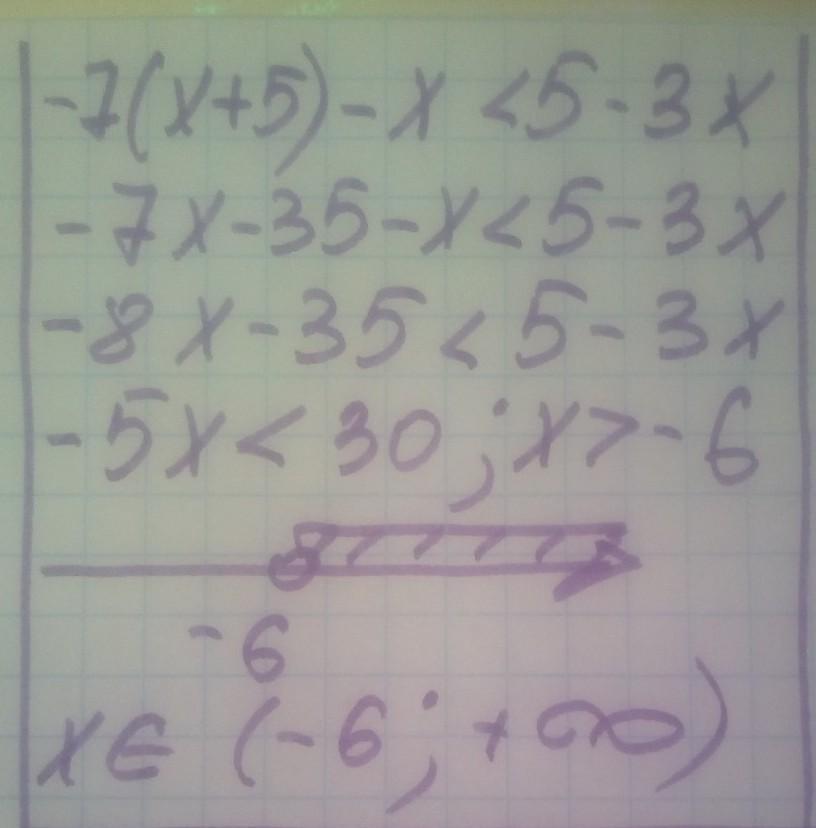 -7(x+5)-x<5-3x
-7x-35-x<5-3x
-8x-35<5-3x
-5x<30; x>-6
-6
x∈(-6; +∞)